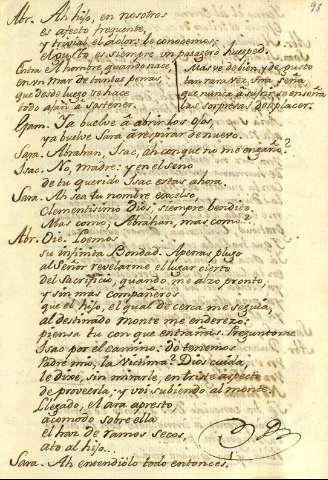 93
Abr. Ah hijo, en nosotros
es afecto frequente,
y trivial el dolor: le conocemos;
el gusto es siempre un pasagero huesped.
Entra el hombre, quando nace
en un mar de tantas penas,
que desde luego se hace
todo afan à sostener.
Mas ve de bien, y de gusto
tan rara vez seña
que nunca à sufrir se enseña
las sorpresas del placer.
Ysam. Ya buelve à abrir los ojos,
ya buelve Sara à respirar de nuevo.
Sara. Abrahan, Isac, ah con que no me engaño?
Isac. No, madre: y en el seno
de tu querido Isac estas ahora.
Sara. Ah sea tu nombre excelso
Clementissimo Dios, siempre bendito
Mas como, Abrahan, mas como?
Abr. Oye. Loemos
su infinita Bondad. Apenas plugo
al Señor revelarme el lugar cierto
del Sacrificio, quando me alzo pronto,
y sin mas compañeros
que el hijo, el qual de cerca me seguia,
al destinado monte me enderezo:
piensa tu con que entrañas. Preguntome
Isac por el camino: dò tenemos
Padre mio, la Victima? Dios cuida,
le dixe, sin mirarle, en triste aspecto
de proveerla; y voi subiendo al monte.
Llegado, el Ara apresto,
acomodo sobre ella
el haz de ramos secos,
ato al hijo..
Sara. Ah entendiòlo todo entonces!